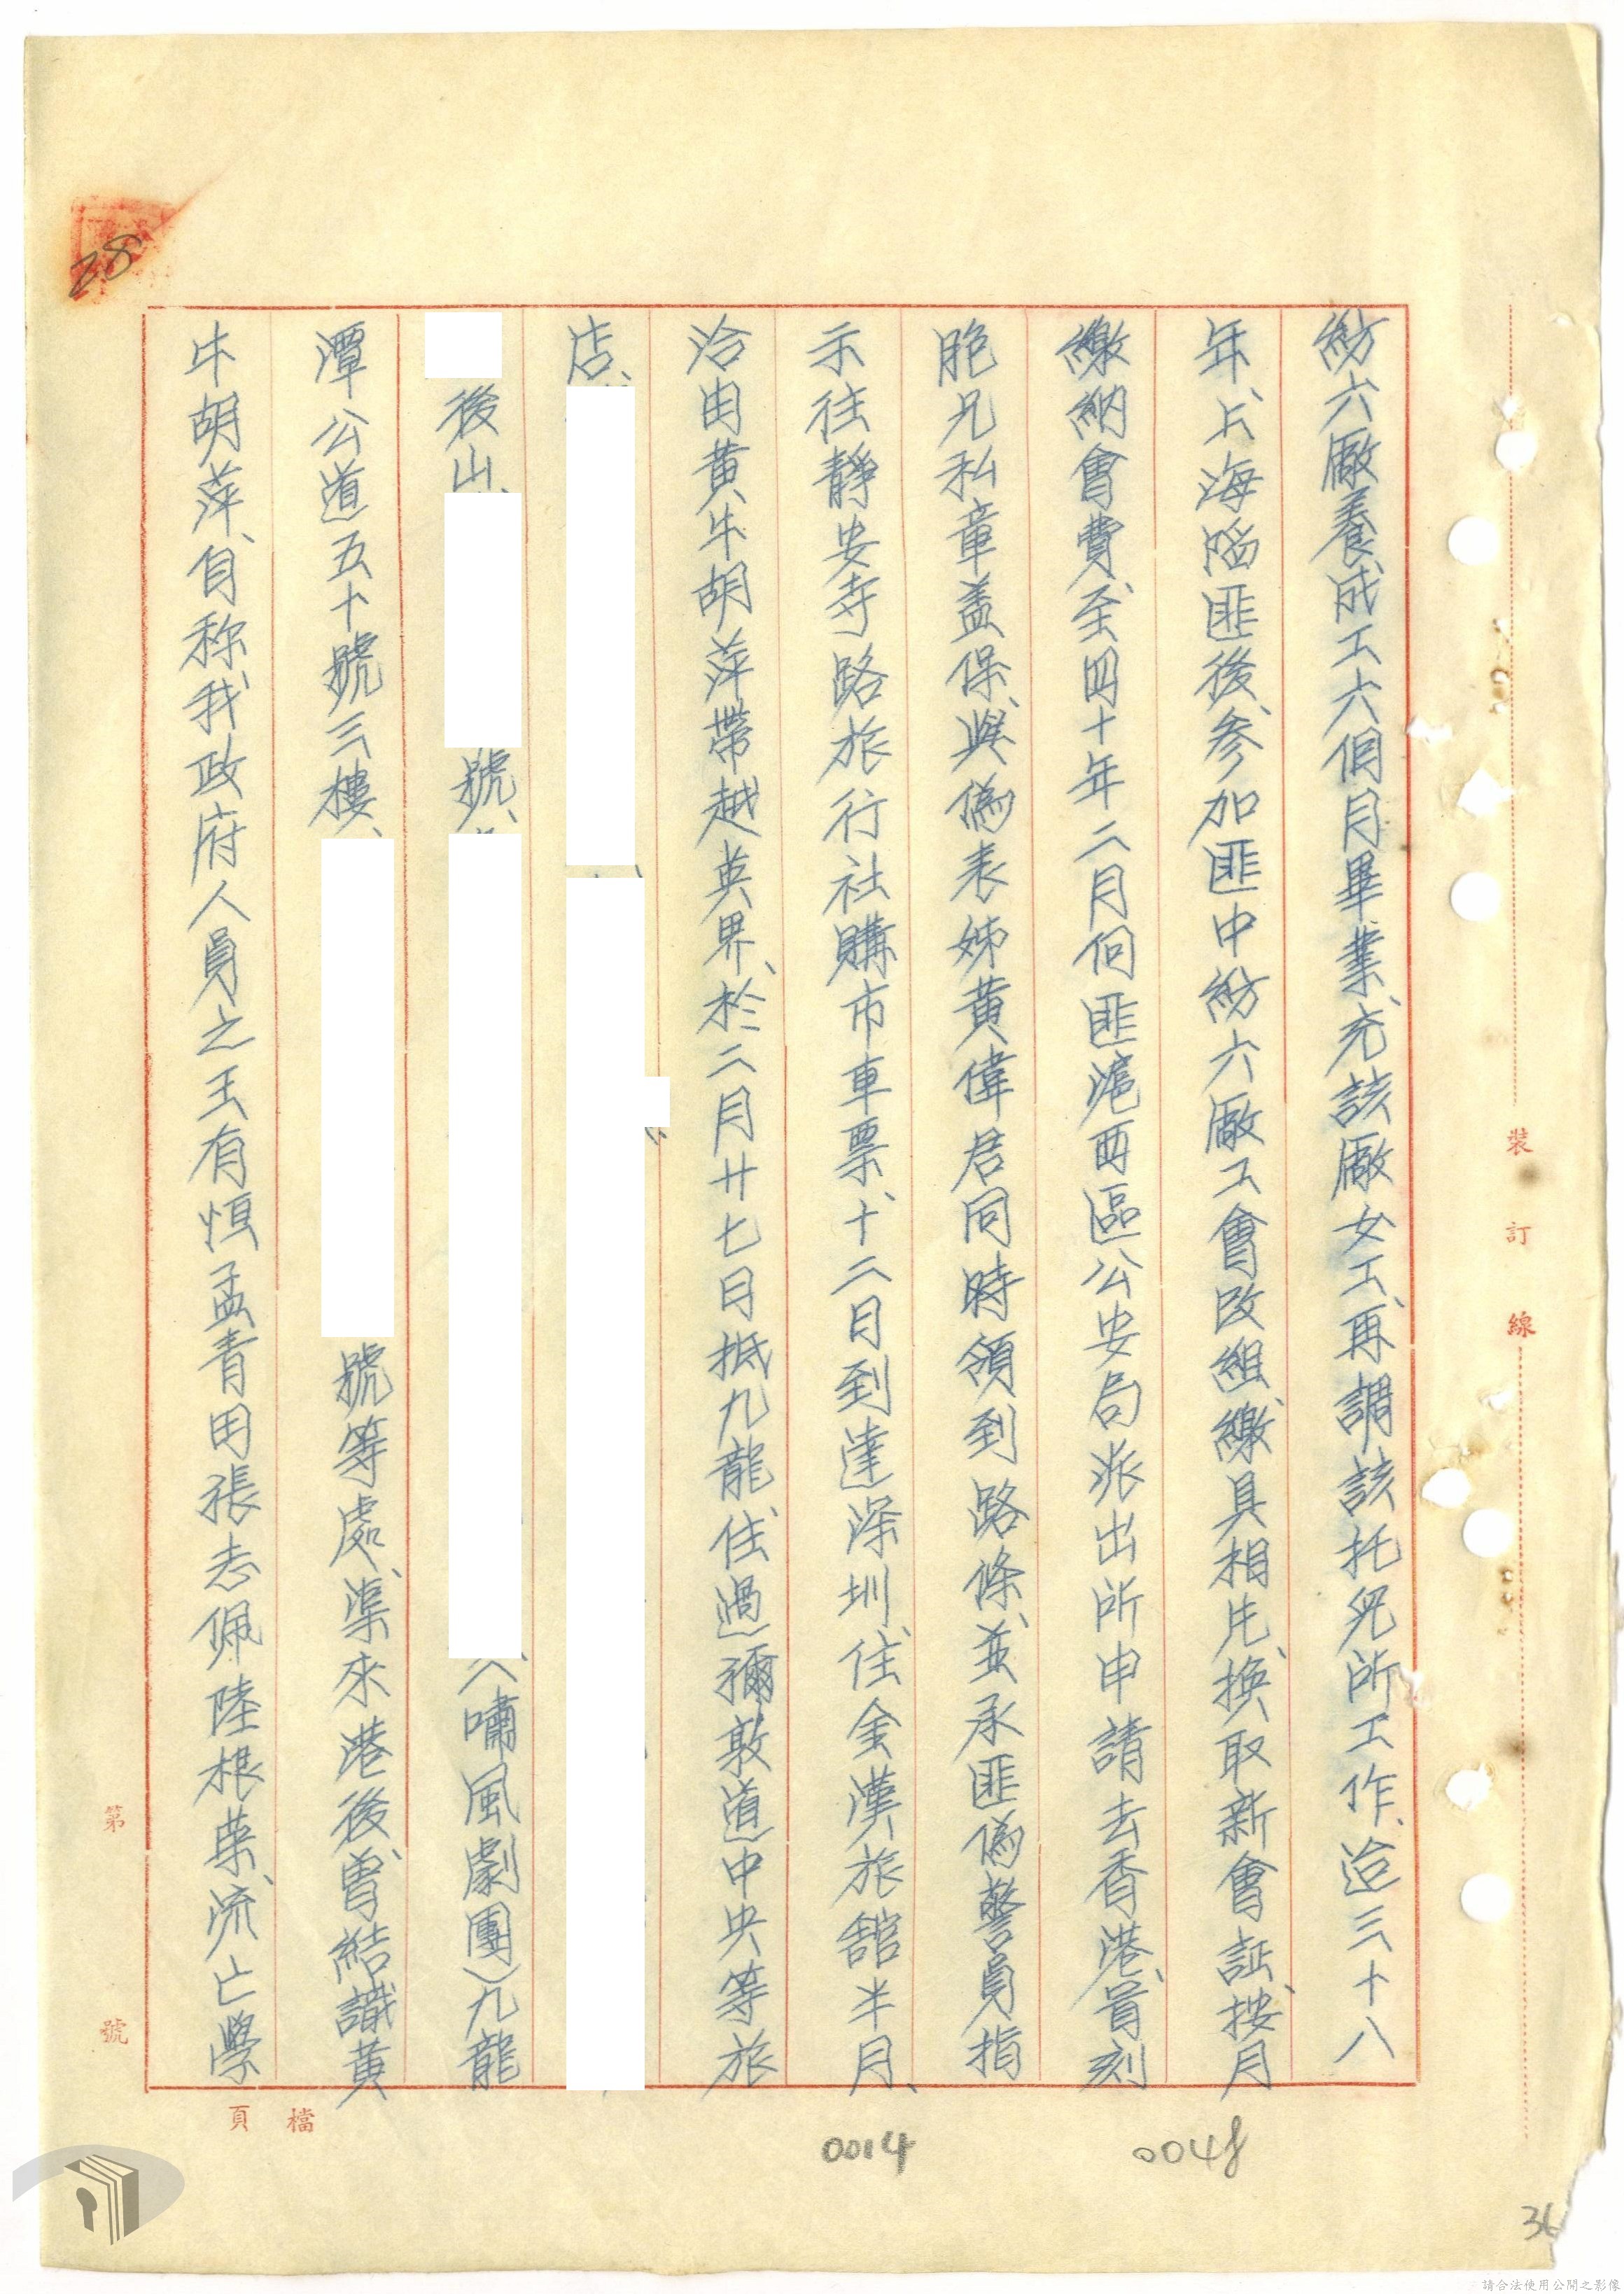 紡六廠養成工六個月畢業、充該廠女工、再調該托兒所工作、迨三十八
年、上海陷匪後、參加匪中紡六廠工會改組、繳具相片、換取新會証、按月
繳納會費、至四十年二月向匪滬西區公安局派出所申請去香港、冐刻
胞兄私章蓋保、與偽表姊黃偉君同時領到路條、並承匪偽警員指
示往靜安寺路旅行社購市車票、十二日到達深圳、住金漢旅舘半月、
洽由黃牛胡萍帶越英界、於二月廿七日抵九龍、住過彌敦道中央等旅
店、
後山、號、(嘯風劇團)九龍
潭公道五十號三樓、號等處、渠來港後、曾結識黃
牛胡萍、自稱我政府人員之王有恒孟青田張志佩陸根葉、流亡學
裝訂線
第 號
檔 頁
28
0014
0048
36
請合法使用公開之影像